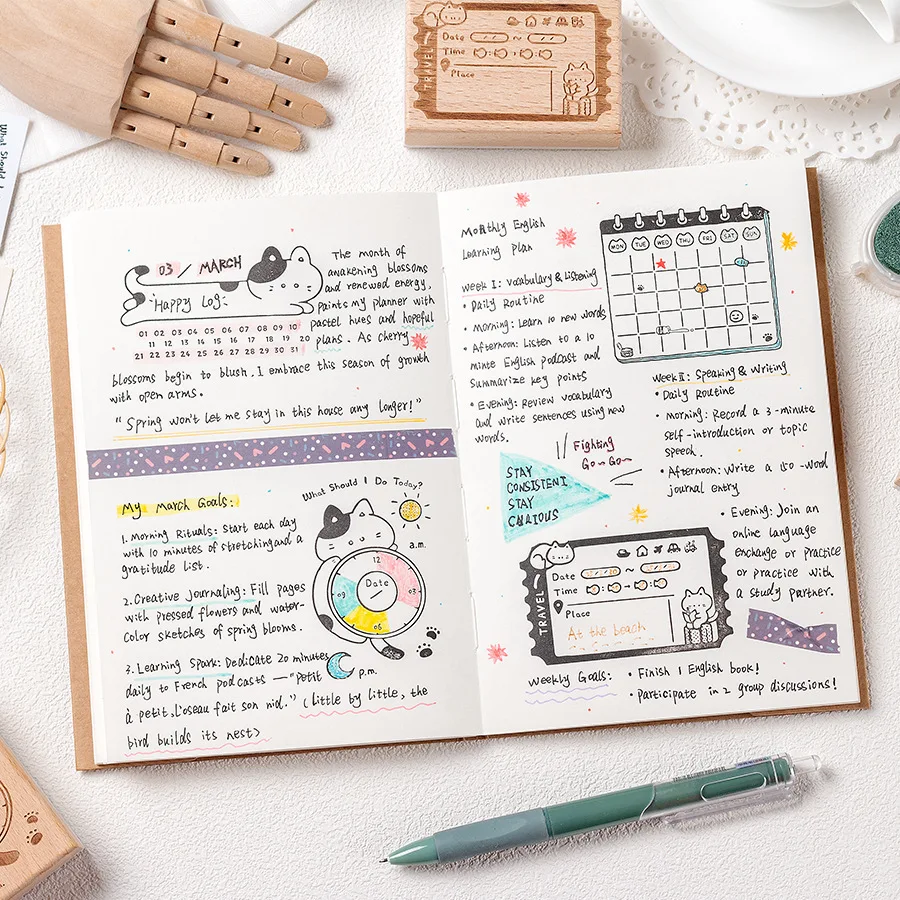 What Should I
Date ~
Time : :
Place
TRAVEL
03 / MARCH
Happy Log
01 02 03 04 05 06 07 08 09 10
11 12 13 14 15 16 17 18 19 20
21 22 23 24 25 26 27 28 29 30 31
The month of
awakening blossoms
and renewed energy,
paints my planner with
pastel hues and hopeful
plans. As cherry
blossoms begin to blush, I embrace this season of growth
with open arms.
"Spring won't let me stay in this house any longer!"
My March Goals:
1. Morning Rituals: Start each day
with 10 minutes of stretching and a
gratitude list.
2. Creative journaling: Fill pages
with pressed flowers and water-
color sketches of spring blooms.
3. Learning Spark: Dedicate 20 minutes
daily to French podcasts — "Petit
à petit, l'oseau fait son nid." (little by little, the
bird builds its nest>
What Should I Do Today?
a.m.
12
09 Date 03
/
06
p.m.
Monthly English
Learning plan
MON TUE WED THU FRI SAT SUN
Week I: Vocabulary & Listening
• Daily Routine
• Morning: Learn 10 new words
• Afternoon: Listen to a 10
minte English podcast and
summarize key points
• Evening: Review vocabulary
and write sentences using new
words.
Week II: Speaking & Writing
• Daily Routine
• Morning: Record a 3-minute
self-introduction or topic
speech.
• Afternoon: Write a 150-word
journal entry
• Evening: Join an
online language
enchange or practice
or practice with
a study partner.
Fighting
Go~Go~
STAY
CONSISTENT
STAY
CURIOUS
TRAVEL
Date ~
Time : :
Place
At the beach
Weekly Goals:
• Finish 1 English book!
• Participate in 2 group discussions!